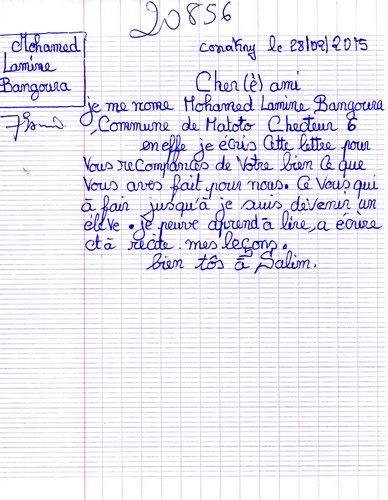 20856
Mohamed
Lamine
Bangoura
conakry le 28/09/2015
Cher(è) ami
je me nome Mohamed Lamine Bangoura
Commune de Matoto Checteur 6
en effe je écris Cette lettre pour
Vous recompances de Votre bien ce que
Vous aves fait pour nous. Ce Vous qui
à fair jusqu'à je suis devenir un
élève. je peuve aprend à lire, a écrire
et à recite mes leçons.
bien tôs à Salim.